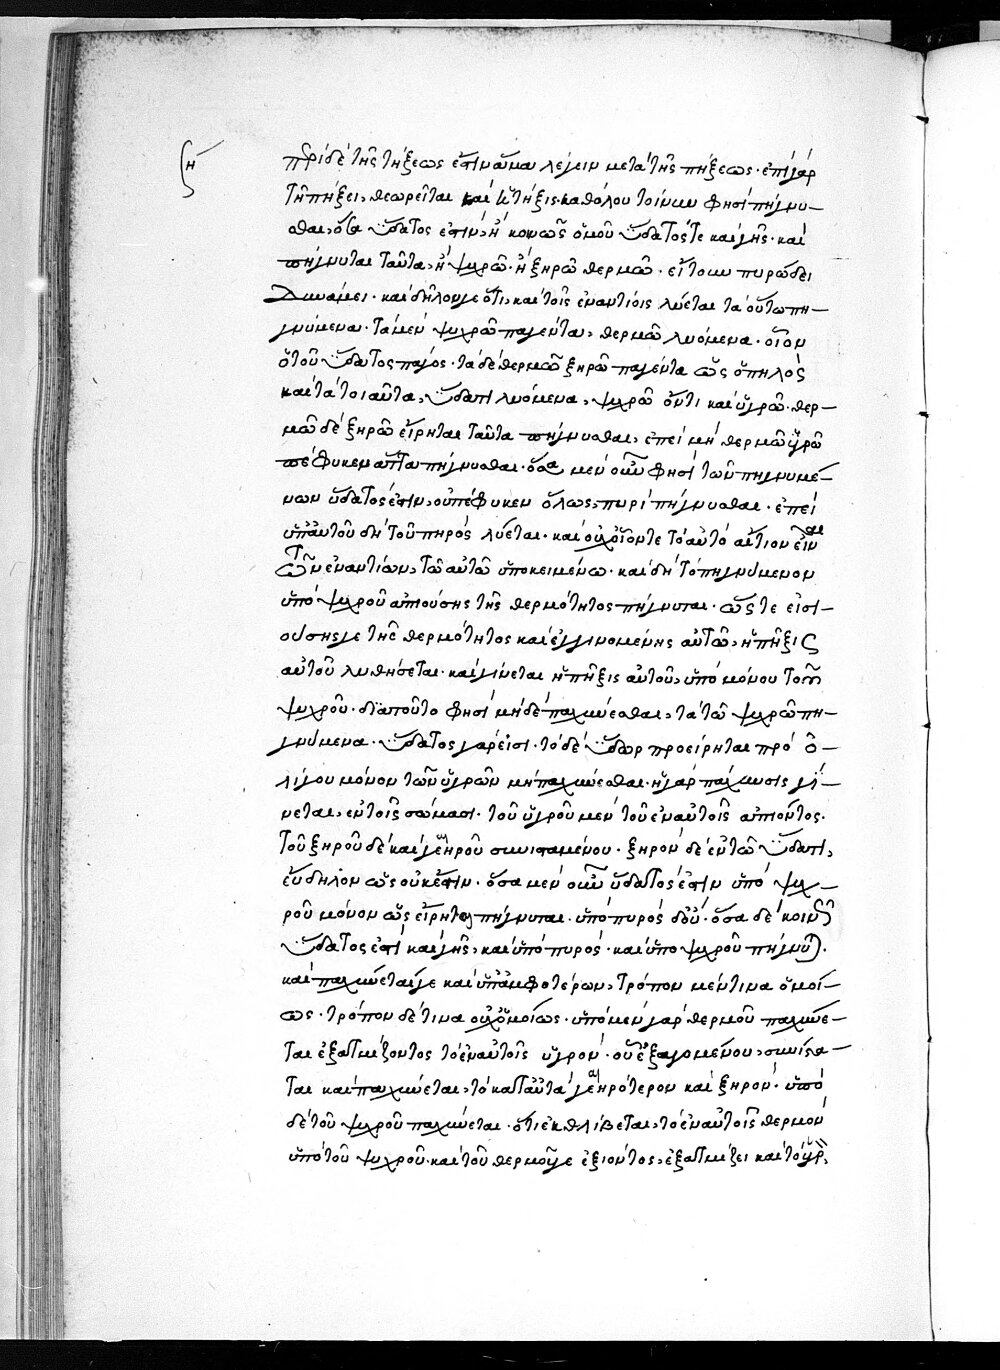 ση
περὶ δὲ τῆς τήξεως ἐστὶν ἅμα λέγειν μετὰ τῆς πήξεως· ἐπὶ γὰρ
τῇ πήξει, θεωρεῖται καὶ ἡ τῆξις· καθόλου τοίνυν φησὶ πήγνυ-
σθαι, ὅσα ὕδατος ἐστὶν, ἢ κοινῶς ὁμοῦ ὕδατός τε καὶ γῆς· καὶ
πήγνυται ταῦτα, ἢ ψυχρῷ· ἢ ξηρῷ θερμῷ· εἴτουν πυρώδει
δυνάμει· καὶ δῆλόν γε ὅτι, καὶ τοῖς ἐναντίοις λύεται τὰ οὕτω πη-
γνύμενα· τὰ μὲν ψυχρῷ παγέντα, θερμῷ λυόμενα· οἷον
ὁ τοῦ ὕδατος πάγος· τὰ δὲ θερμῷ ξηρῷ παγέντα ὡς ὁ πηλὸς
καὶ τὰ τοιαῦτα, ὕδατι λυόμενα, ψυχρῷ ὄντι καὶ ὑγρῷ· θερ-
μῷ δὲ ξηρῷ εἴρηται ταῦτα πήγνυσθαι, ἐπεὶ μὴ θερμῷ ὑγρῷ
πέφυκεν πήγνυσθαι· ὅσα μὲν οὖν φησὶ τῶν πηγνυμέ-
νων ὕδατός ἐστιν, οὐ πέφυκεν ὅλως, πυρὶ πήγνυσθαι· ἐπεὶ
ὑπ' αὐτοῦ δὴ τοῦ πυρὸς λύεται· καὶ οὐχ οἷόν τε τὸ αὐτὸ αἴτιον εἶναι
τῶν ἐναντίων, τῷ αὐτῷ ὑποκειμένῳ· καὶ δὴ τὸ πηγνύμενον
ὑπὸ ψυχροῦ ἀπιούσης τῆς θερμότητος πήγνυται· ὥστε εἰσι-
ούσης γε τῆς θερμότητος καὶ ἐγγινομένης αὐτῷ, ἡ πῆξις
αὐτοῦ λυθήσεται· καὶ γίνεται ἡ πῆξις αὐτοῦ, ὑπὸ μόνου τοῦ
ψυχροῦ· διὰ τοῦτο φησὶ μηδὲ παχύνεσθαι, τὰ τῷ ψυχρῷ πη-
γνύμενα· ὕδατος γάρ εἰσι· τὸ δὲ ὕδωρ προείρηται πρὸ ὀ-
λίγου μόνον τῶν ὑγρῶν μὴ παχύνεσθαι· ἡ γὰρ πάχυνσις γί-
νεται, ἐν τοῖς σώμασι· τοῦ ὑγροῦ μὲν τοῦ ἐν αὐτοῖς ἀπιόντος·
τοῦ ξηροῦ δὲ καὶ γεηροῦ συνισταμένου· ξηρὸν δὲ ἐν τῷ ὕδατι,
εὔδηλον ὡς οὐκ ἔστιν· ὅσα μὲν οὖν ὕδατός ἐστιν ὑπὸ ψυχ-
ροῦ μόνον ὡς εἴρηται πήγνυται· ὑπὸ πυρὸς δ' οὔ· ὅσα δὲ κοινῶς
ὕδατος ἐστὶ καὶ γῆς, καὶ ὑπὸ πυρὸς· καὶ ὑπὸ ψυχροῦ πήγνυται·
καὶ παχύνεταί γε καὶ ὑπ' ἀμφοτέρων, τρόπον μέν τινα ὁμοί-
ως· τρόπον δέ τινα οὐχ ὁμοίως· ὑπὸ μὲν γὰρ θερμοῦ παχύνε-
ται ἐξατμίζοντος τὸ ἐν αὐτοῖς ὑγρόν· οὗ ἐξαγομένου, συνίστα-
ται καὶ παχύνεται, τὸ κατ' αὐτὰ γεηρότερον καὶ ξηρόν· ὑπὸ
δὲ τοῦ ψυχροῦ παχύνεται· ὅτι ἐκθλίβεται, τὸ ἐν αὐτοῖς θερμὸν
ὑπὸ τοῦ ψυχροῦ· καὶ τοῦ θερμοῦ γε ἐξιόντος, ἐξατμίζει καὶ τὸ ὑγρόν,